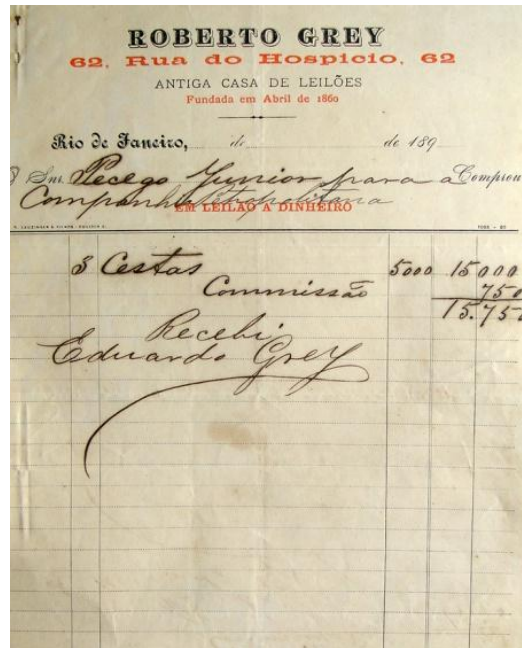 ROBERTO GREY
62, Rua do Hospicio, 62
ANTIGA CASA DE LEILÕES
Fundada em Abril de 1860
Rio de Janeiro, de de 189
Snr. Pecego Junior para a Comprou
Companhia Metropolitana
EM LEILÃO A DINHEIRO
3 Cestas 5000 15000
Commissão 750
15.750
Recebi
Eduardo Grey